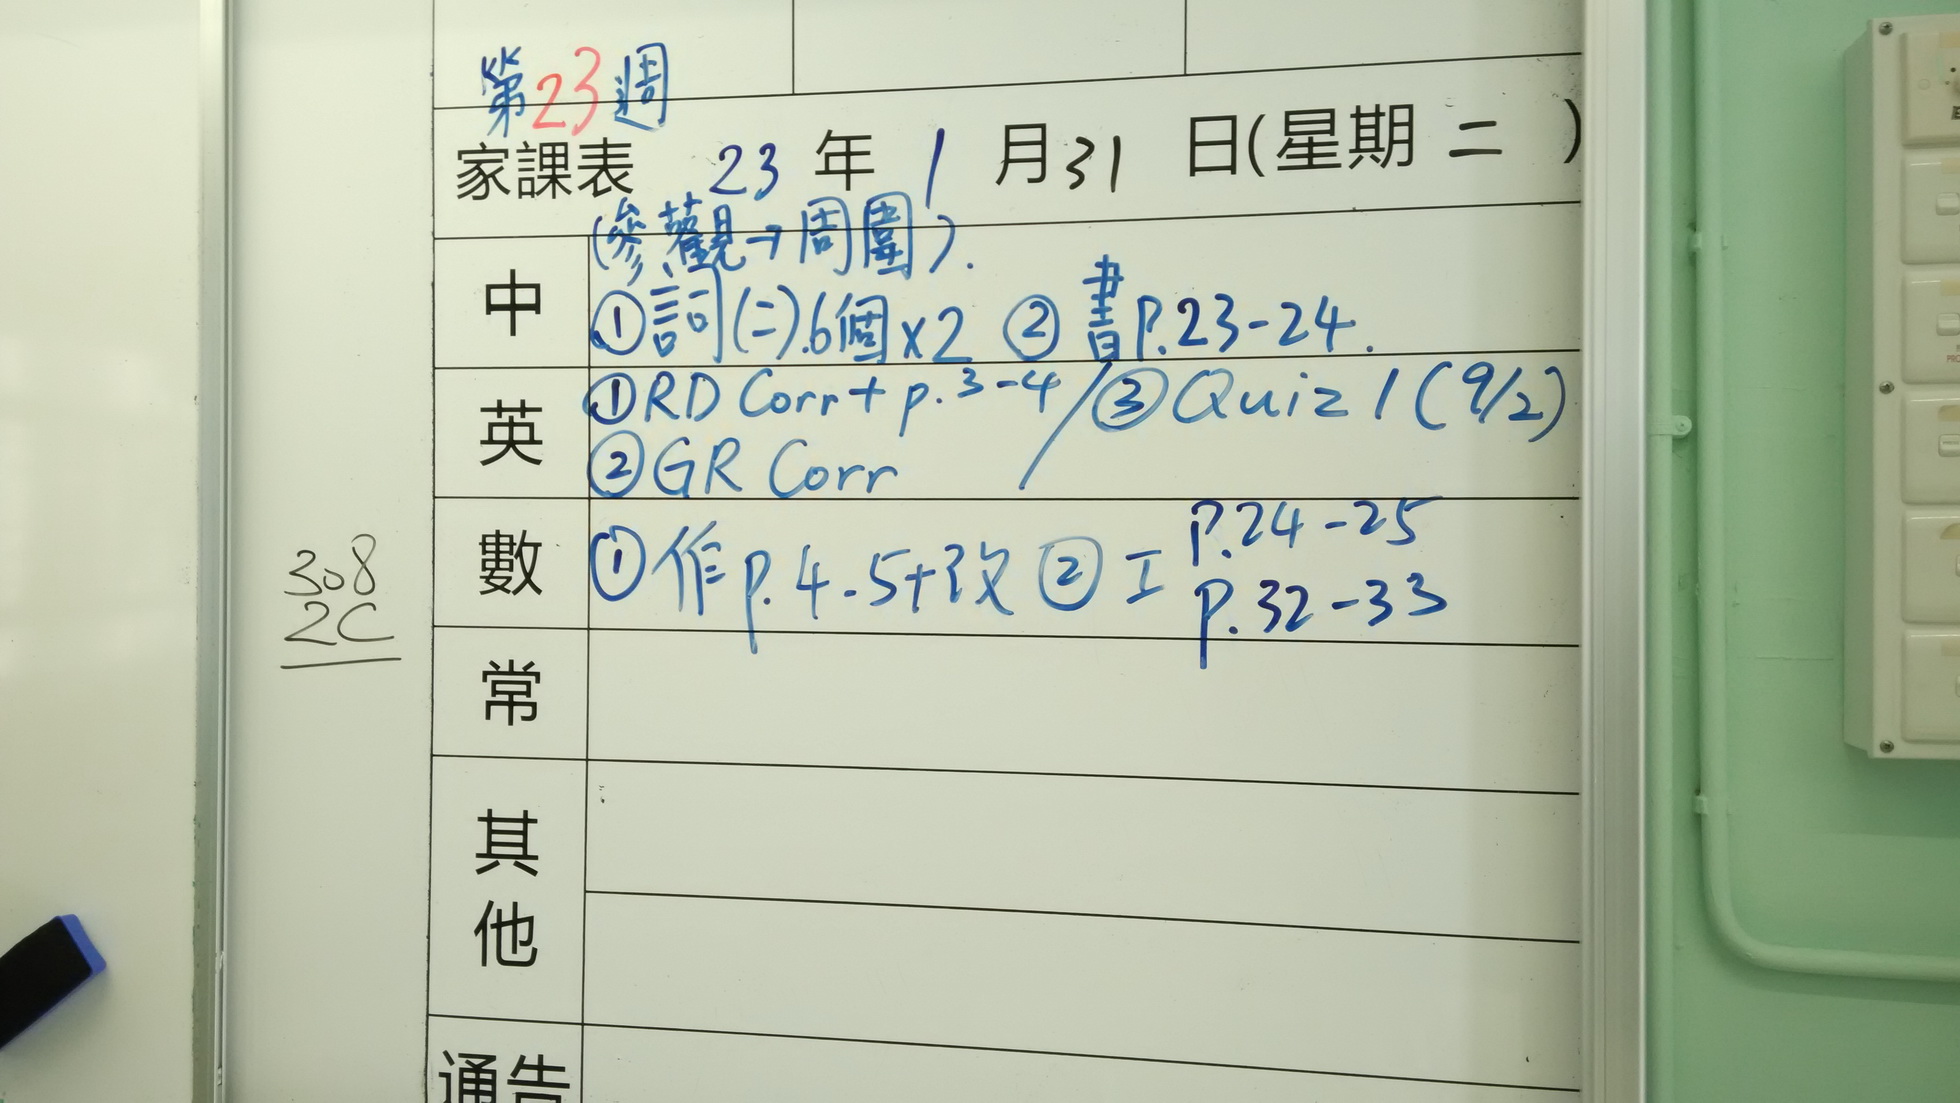 第23週
家課表 23 年 1 月 31 日(星期 二 )
(參觀→周圍).
中 ①詞(二).6個×2 ② 書P.23-24.
英 ①RD Corr+ p.3-4 / ③Quiz 1 (9/2)
②GR Corr
數 ①作p.4-5+改 ②工 P.24-25
P.32-33
308
2C
常
其他
通告